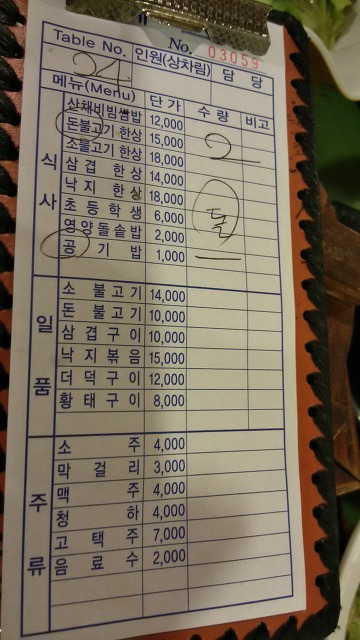 No. 03059
Table No. 인원(상차림) 담 당
24
메뉴(Menu) 단 가 수 량 비고
식사
산채비빔쌈밥 12,000
돈불고기 한상 15,000 2
소불고기 한상 18,000
삼겹 한상 14,000
낙지 한상 18,000
초등학생 6,000 돌
영양돌솥밥 2,000
공기밥 1,000
일품
소 불고기 14,000
돈 불고기 10,000
삼겹구이 10,000
낙지볶음 15,000
더덕구이 12,000
황태구이 8,000
주류
소주 4,000
막걸리 3,000
맥주 4,000
청하 4,000
고택주 7,000
음료수 2,000